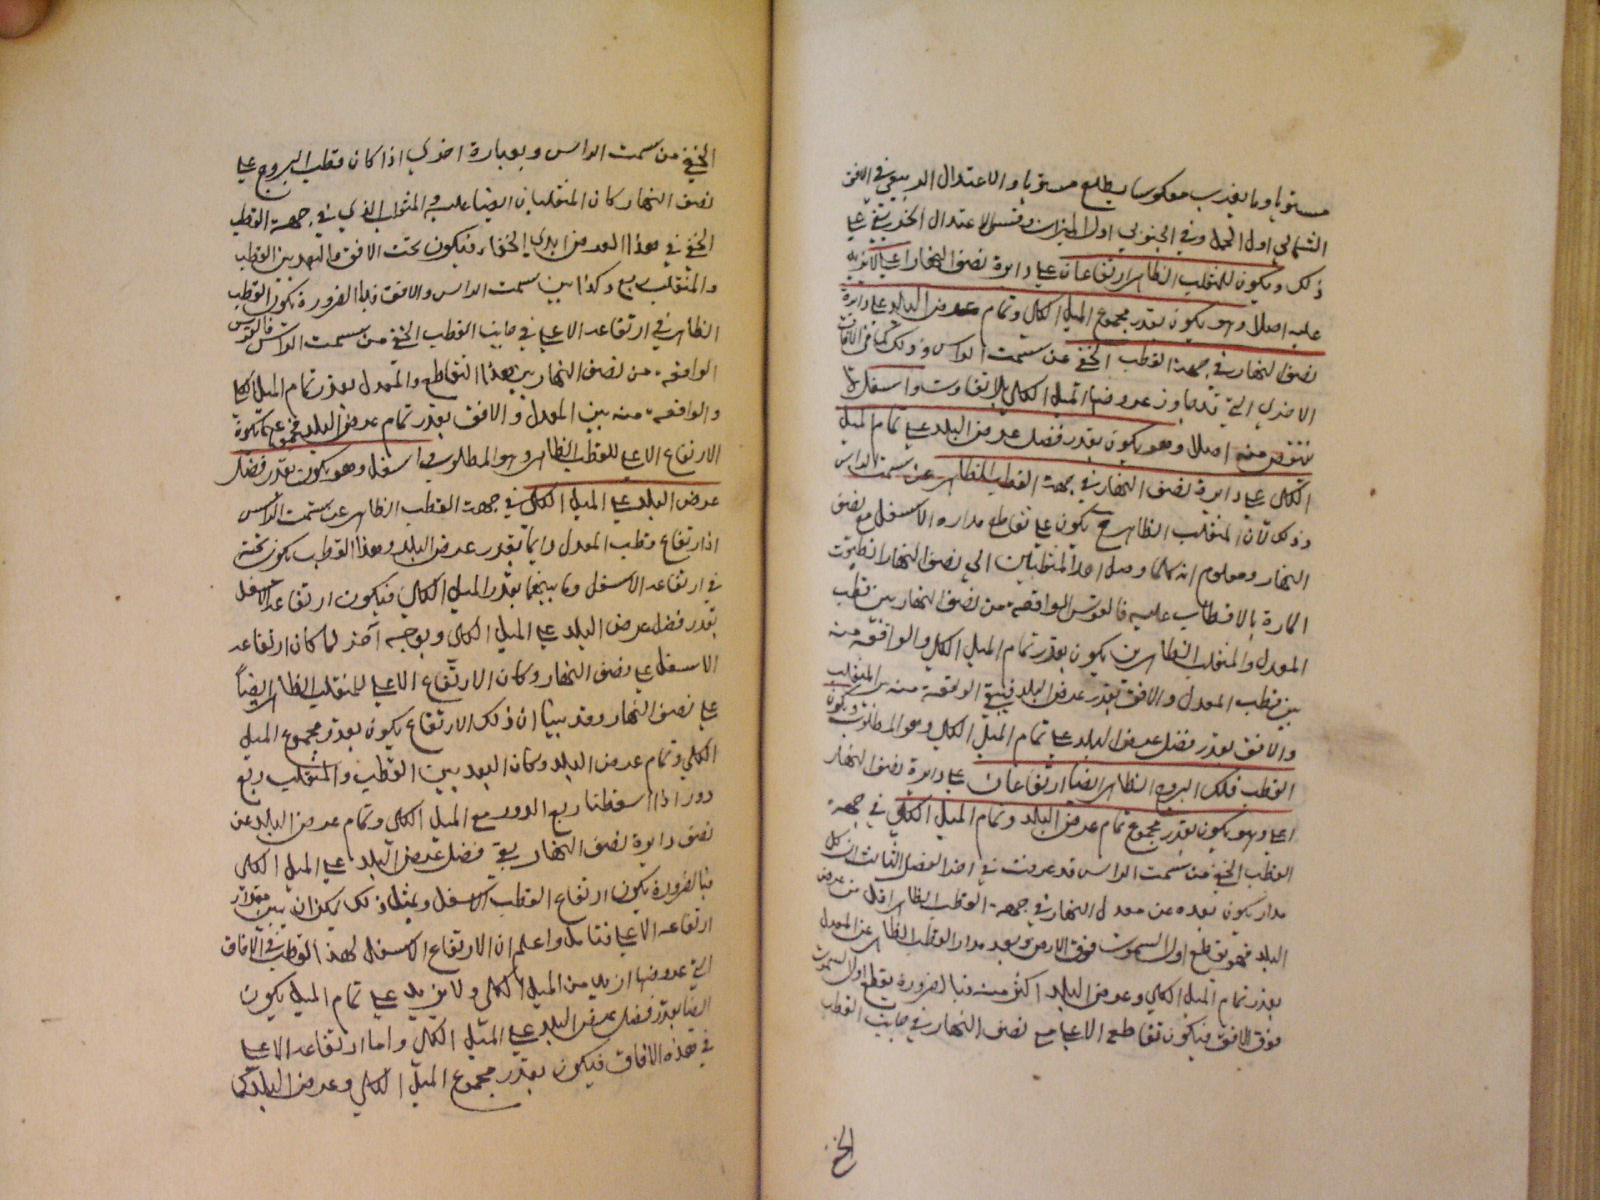 مستويا وما يغرب معكوسا يطلع مستويا والاعتدال الربيعي في الافق
الشمالي اول الحمل وفي الجنوبي اول الميزان وقس الاعتدال الخريفي على
ذلك ويكون للمنقلب الظاهر ارتفاعان على دائرة نصف النهار اعلى لا يزيد
عليه اصلا وهو يكون بقدر مجموع الميل الكلي وتمام عرض البلد على دائرة
نصف النهار في جهة القطب الخفي عن سمت الراس وذلك كما في الآفاق
الاخرى التي تجاوز عروضها الميل الكلي بلا تفاوت واسفل لا
ينقص منه اصلا وهو يكون بقدر فضل عرض البلد على تمام الميل
الكلي على دائرة نصف النهار في جهة القطب الظاهر عن سمت الراس
وذلك لان المنقلب الظاهر ح يكون على تقاطع مداره الاسفل مع نصف
النهار ومعلوم انه كلما وصل احد المنقلبين الى نصف النهار انطبقت
المارة بالاقطاب عليه فالقوس الواقعة من نصف النهار بين قطب
المعدل والمنقلب الظاهرين يكون بقدر تمام الميل الكلي والواقعة منه
بين قطب المعدل والافق بقدر عرض البلد فيبقى الواقعة منه بين المنقلب
والافق بقدر فضل عرض البلد على تمام الميل الكلي وهو المطلوب ويكون
لقطب فلك البروج الظاهر ايضا ارتفاعان على دائرة نصف النهار
اعلى وهو يكون بقدر مجموع تمام عرض البلد وتمام الميل الكلي في جهة
القطب الخفي من سمت الراس قد عرفت في اخر الفصل الثالث ان كل
مدار يكون بعده عن معدل النهار في جهة القطب الظاهر اقل من عرض
البلد فهو يقطع اول السموت فوق الارض وبعد مدار القطب الظاهر عن المعدل
بقدر تمام الميل الكلي وعرض البلد اكثر منه فبالضرورة يقطع اول السموت
فوق الافق فيكون تقاطعه الاعلى مع نصف النهار في جانب القطب
الخفي
الخفي من سمت الراس وبعبارة اخرى اذا كان قطب البروج على
نصف النهار كان المنقلبان ايضا عليه والمنقلب الذي في جهة القطب
الخفي في هذا العرض ابدي الخفاء فيكون تحت الافق والبعد بين القطب
والمنقلب ربع وكذا بين سمت الراس والافق فبالضرورة يكون القطب
الظاهر في ارتفاعه الاعلى في جانب القطب الخفي من سمت الراس فالقوس
الواقعة من نصف النهار بين هذا التقاطع والمعدل بقدر تمام الميل الكلي
والواقعة منه بين المعدل والافق بقدر تمام عرض البلد فمجموعهما يكون
الارتفاع الاعلى للقطب الظاهر وهو المطلوب واسفل وهو يكون بقدر فضل
عرض البلد على الميل الكلي في جهة القطب الظاهر عن سمت الراس
اذ ارتفاع قطب المعدل دائما بقدر عرض البلد وهذا القطب يكون تحته
في ارتفاعه الاسفل وما بينهما بقدر الميل الكلي فيكون ارتفاعه الاسفل
بقدر فضل عرض البلد على الميل الكلي وبوجه آخر لما كان ارتفاعه
الاسفل على نصف النهار وكان الارتفاع الاعلى للمنقلب الظاهر ايضاً
على نصف النهار وقد بينا ان ذلك الارتفاع يكون بقدر مجموع الميل
الكلي وتمام عرض البلد وكان البعد بين القطب والمنقلب ربع
دور اذا اسقطنا ربع الدور مع الميل الكلي وتمام عرض البلد عن
نصف دائرة نصف النهار يبقى فضل عرض البلد على الميل الكلي
فبالضرورة يكون ارتفاع القطب الاسفل وبمثل ذلك يمكن ان يبين مقدار
ارتفاعه الاعلى فتامل واعلم ان الارتفاع الاسفل لهذا القطب في الآفاق
التي عروضها ازيد من الميل الكلي ولا يزيد على تمام الميل يكون
ايضا بقدر فضل عرض البلد على الميل الكلي واما ارتفاعه الاعلى
في هذه الافاق فيكون بقدر مجموع الميل الكلي وعرض البلد كما